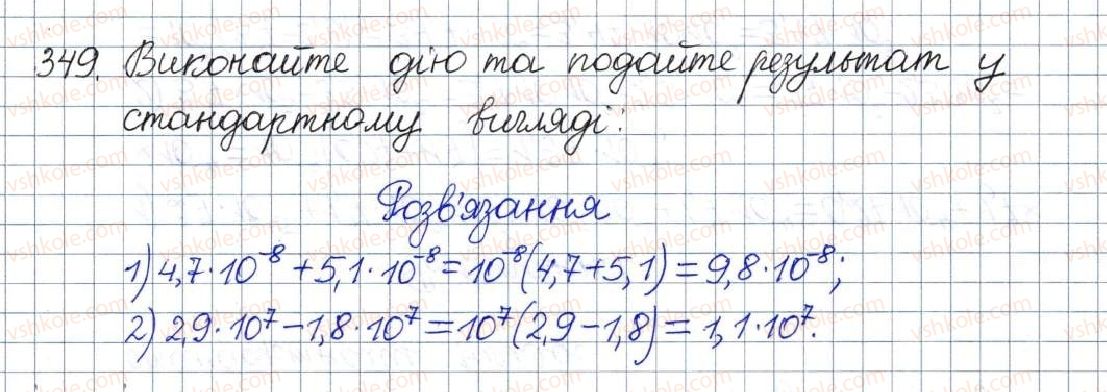 349. Виконайте дію та подайте результат у
стандартному вигляді:
Розв'язання
1) 4,7·10⁻⁸ + 5,1·10⁻⁸ = 10⁻⁸(4,7+5,1) = 9,8·10⁻⁸;
2) 2,9·10⁷ − 1,8·10⁷ = 10⁷(2,9−1,8) = 1,1·10⁷.